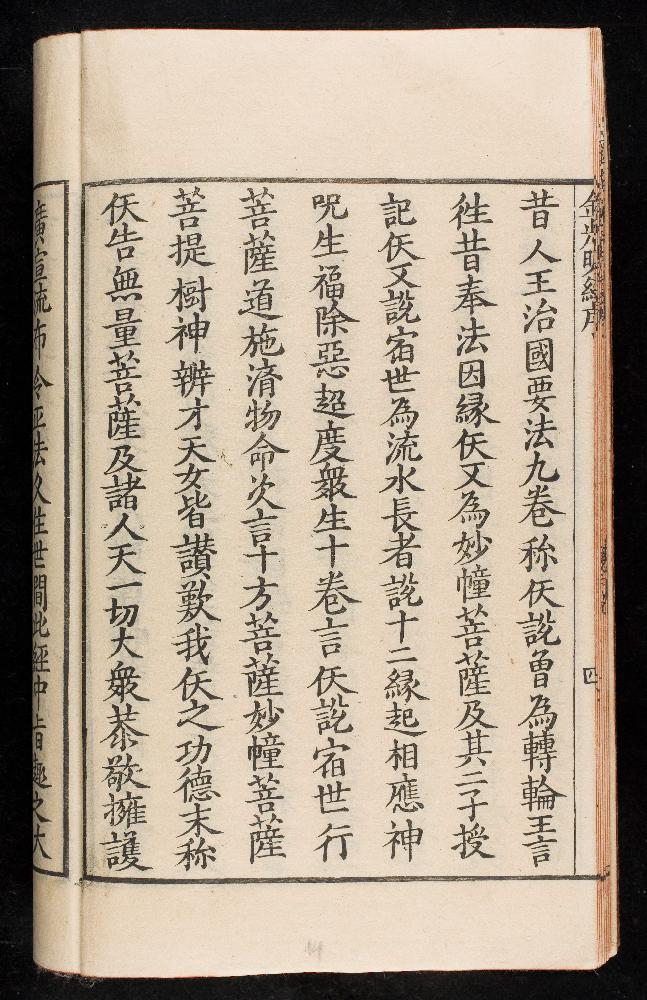 金光明經序
四
昔人王治國要法九卷称仸說曽為轉輪王言
徃昔奉法因緣仸又為妙幢菩薩及其二子授
記仸又說宿世為流水長者說十二緣起相應神
呪生福除惡超度衆生十卷言仸說宿世行
菩薩道施濟物命次言十方菩薩妙幢菩薩
菩提樹神辦才天女皆讃歎我仸之功德末称
仸告無量菩薩及諸人天一切大衆恭敬擁護
廣宣流布令正法久住世間此經中旨趣之大